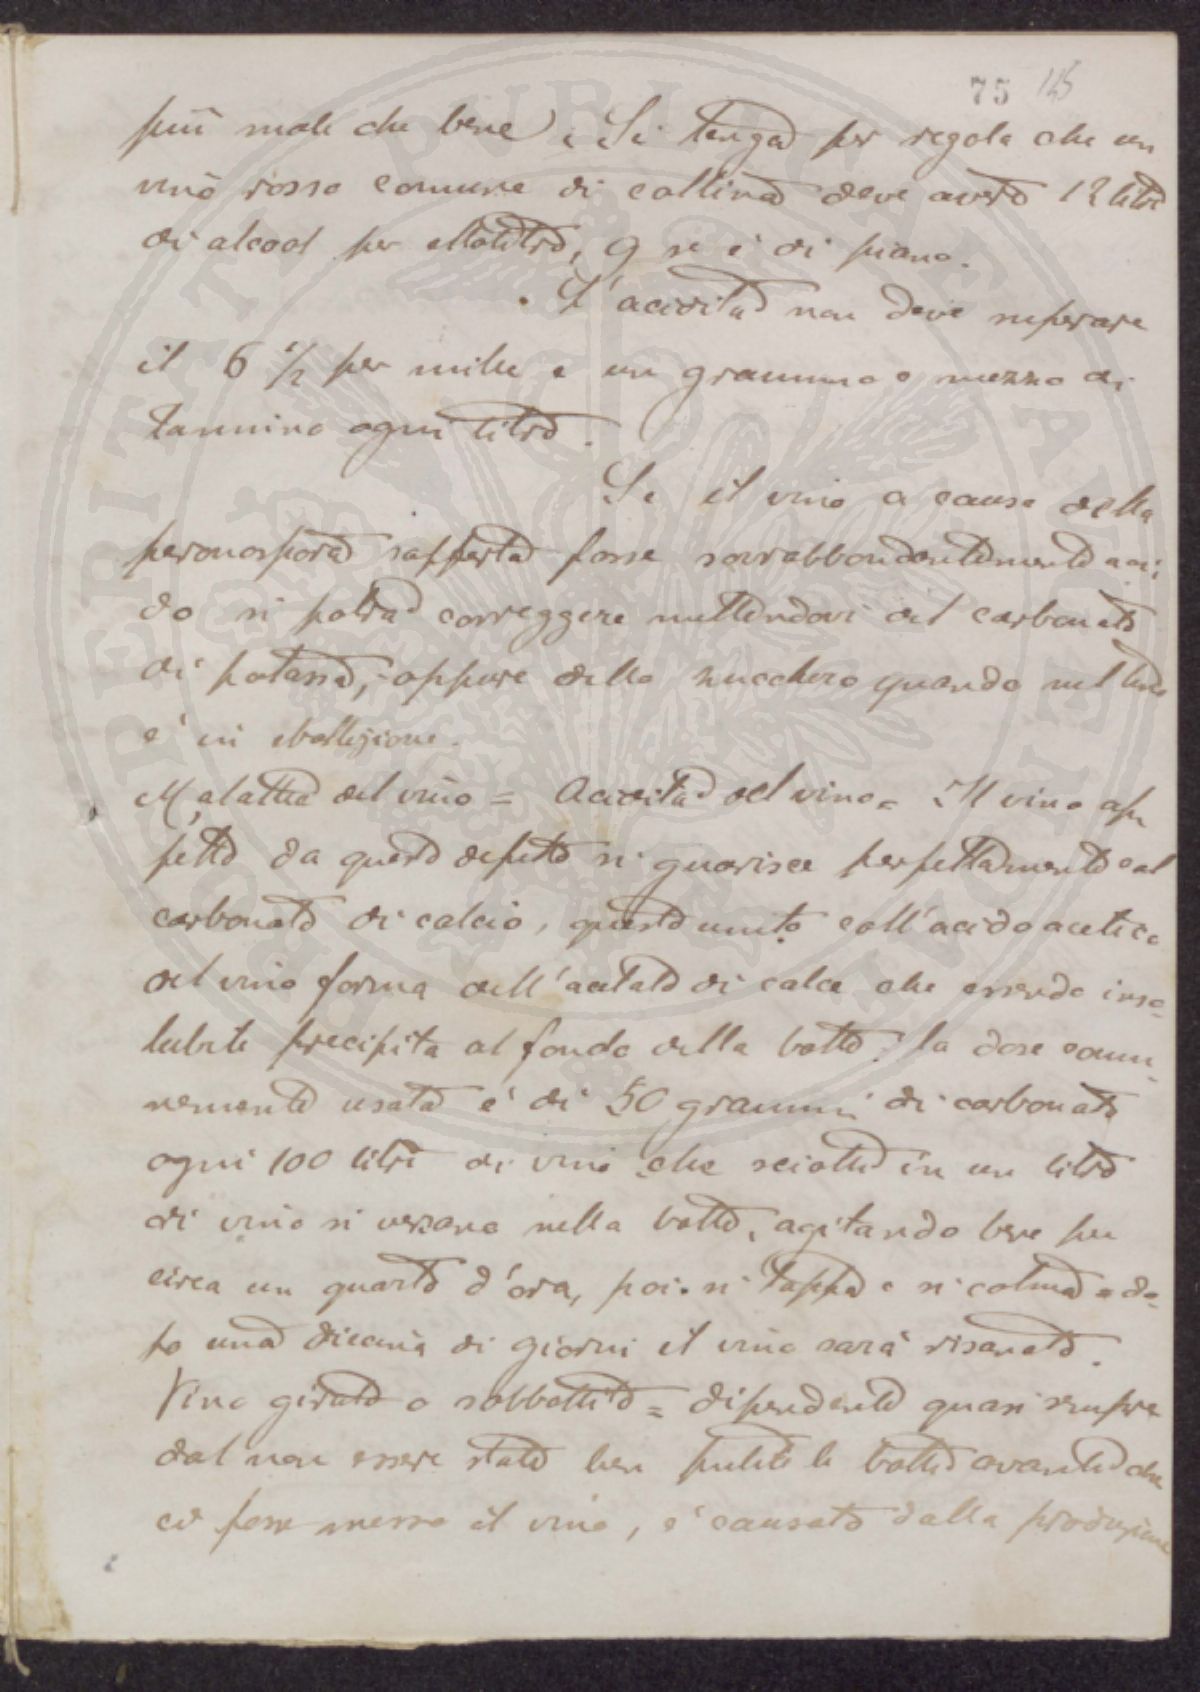 75 145
più male che bene. Si tenga per regola che un
vino rosso comune di collina deve avere 12 litri
di alcool per ettolitro, 9 se è di piano.
L'acidità non deve superare
il 6 1/2 per mille e un grammo e mezzo di
tannino ogni litro.
Se il vino a causa della
peronospora sofferta fosse sovrabbondantemente aci
do si potrà correggere mettendovi del carbonato
di potassa, oppure dello zucchero quando nel tino
è in ebollizione.
Malattia del vino = Acidità del vino = Il vino af
fetto da questo difetto si guarisce perfettamente col
carbonato di calcio, questo unito coll'acido acetico
del vino forma dell'acetato di calce che essendo inso-
lubile precipita al fondo della botte. la dose comu-
nemente usata è di 50 grammi di carbonato
ogni 100 litri di vino che sciolto in un litro
di vino si versano nella botte, agitando bene per
circa un quarto d'ora, poi si tappa e si colma e do-
po una diecina di giorni il vino sarà risanato.
Vino girato o sobbollito = dipendente quasi sempre
dal non essere stato ben pulite le botti avanti che
ci fosse messo il vino, è causato dalla produzione
PUBLICAE UTILITATI PROSPERITATI